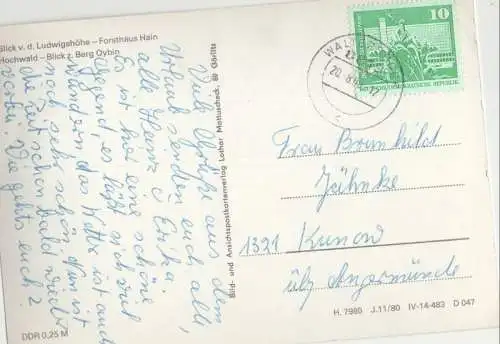 Blick v. d. Ludwigshöhe – Forsthaus Hain
Hochwald – Blick z. Berg Oybin
Viele Grüße aus dem
Urlaub senden euch allen,
alle Heinz u. Erika.
Es ist hier eine schöne
Gegend, es läßt sich viel
wandern, das Wetter ist auch
noch sehr schön. Nun ist
die Zeit schon bald wieder
vorbei. Wie gehts euch?
DDR 0,25 M
Bild- und Ansichtspostkartenverlag Lothar Mattuscheck, 89 Görlitz
10
DEUTSCHE DEMOKRATISCHE REPUBLIK
Frau Brunhild
Jähnke
1321 Kunow
üb/ Angermünde
H. 7980 J.11/80 IV-14-483 D 047